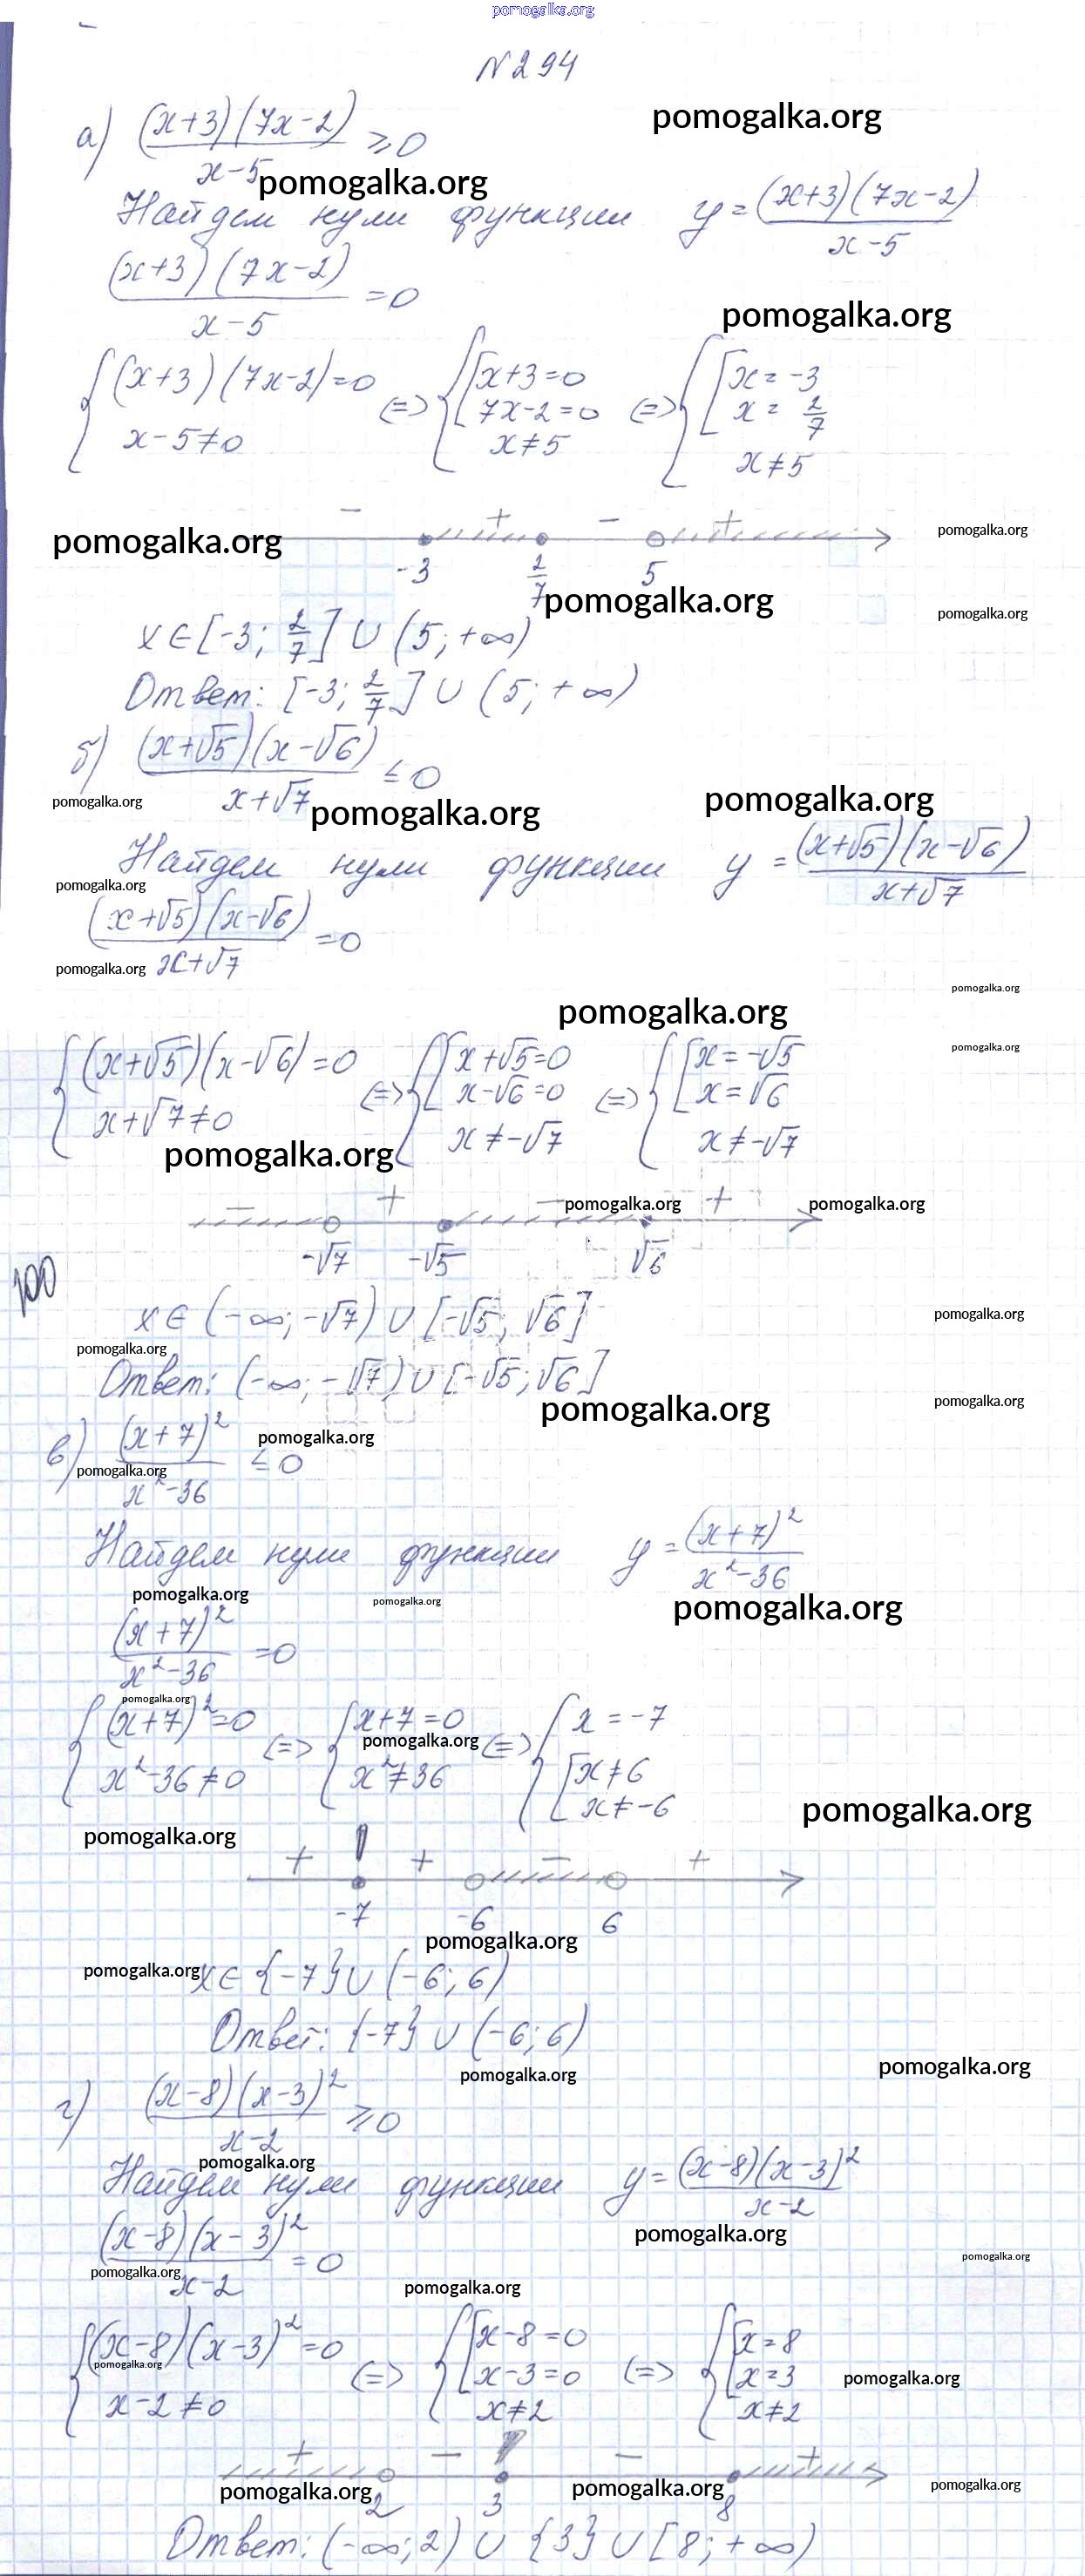 pomogalka.org
№294
а) (x+3)(7x-2)/(x-5) ≥ 0
pomogalka.org
pomogalka.org
Найдем нули функции y = (x+3)(7x-2)/(x-5)
(x+3)(7x-2)/(x-5) = 0
pomogalka.org
{(x+3)(7x-2)=0 <=> {[x+3=0 <=> {[x=-3
7x-2=0 x=2/7
x-5≠0 x≠5 x≠5
- + - +
pomogalka.org pomogalka.org
-3 2/7 5
pomogalka.org pomogalka.org
x∈[-3; 2/7] ∪ (5; +∞)
Ответ: [-3; 2/7] ∪ (5; +∞)
б) (x+√5)(x-√6)/(x+√7) ≤ 0
pomogalka.org pomogalka.org pomogalka.org
Найдем нули функции y = (x+√5)(x-√6)/(x+√7)
pomogalka.org
(x+√5)(x-√6)/(x+√7) = 0
pomogalka.org
pomogalka.org
pomogalka.org
pomogalka.org
{(x+√5)(x-√6)=0 <=> {[x+√5=0 <=> {[x=-√5
x-√6=0 x=√6
x+√7≠0 x≠-√7 x≠-√7
pomogalka.org
- + - pomogalka.org + pomogalka.org
-√7 -√5 √6
100
x∈(-∞; -√7) ∪ [-√5; √6]
pomogalka.org
pomogalka.org
Ответ: (-∞; -√7) ∪ [-√5; √6]
pomogalka.org pomogalka.org
в) (x+7)²/(x²-36) ≤ 0
pomogalka.org
pomogalka.org
Найдем нули функции y = (x+7)²/(x²-36)
pomogalka.org pomogalka.org pomogalka.org
(x+7)²/(x²-36) = 0
pomogalka.org
{(x+7)²=0 <=> {x+7=0 <=> {x=-7
pomogalka.org
x²-36≠0 x²≠36 [x≠6
x≠-6
pomogalka.org
pomogalka.org
+ + - +
-7 -6 6
pomogalka.org
pomogalka.org
x∈{-7}∪(-6; 6)
Ответ: {-7} ∪ (-6; 6)
pomogalka.org pomogalka.org
г) (x-8)(x-3)²/(x-2) ≥ 0
pomogalka.org
Найдем нули функции y = (x-8)(x-3)²/(x-2)
pomogalka.org
(x-8)(x-3)²/(x-2) = 0
pomogalka.org
pomogalka.org pomogalka.org
{(x-8)(x-3)²=0 <=> {[x-8=0 <=> {[x=8
pomogalka.org
x-3=0 x=3
pomogalka.org
x-2≠0 x≠2 x≠2
+ - - +
pomogalka.org pomogalka.org pomogalka.org
2 3 8
Ответ: (-∞; 2) ∪ {3} ∪ [8; +∞)